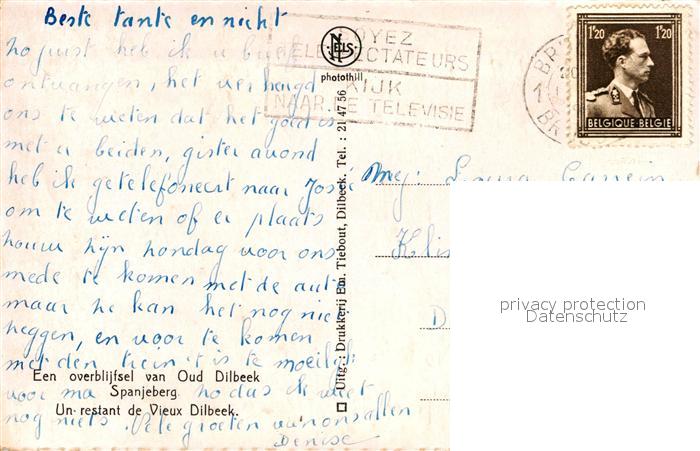 Beste tante en nicht
no juist heb ik u brief
ontvangen, het verheugd
ons te weten dat het goed is
met u beiden, gister avond
heb ik getelefoneert naar José
om te weten of er plaats
houw zijn zondag voor ons
mede te komen met de auto
maar he kan het nog niet
zeggen, en voor te komen
met den trein 't is te moeilijk
voor ma zo das ik weet
nog niets. Vele groeten van ons allen
Denise
Een overblijfsel van Oud Dilbeek
Spanjeberg.
Un restant de Vieux Dilbeek.
NELS
photothill
Uitg.: Drukkerij Em. Tiebout, Dilbeek. Tel.: 21 47 56
SOYEZ
TELESPECTATEURS
KIJK
NAAR DE TELEVISIE
1f20 1f20
BELGIQUE-BELGIE
Mej: Louisa
privacy protection
Datenschutz